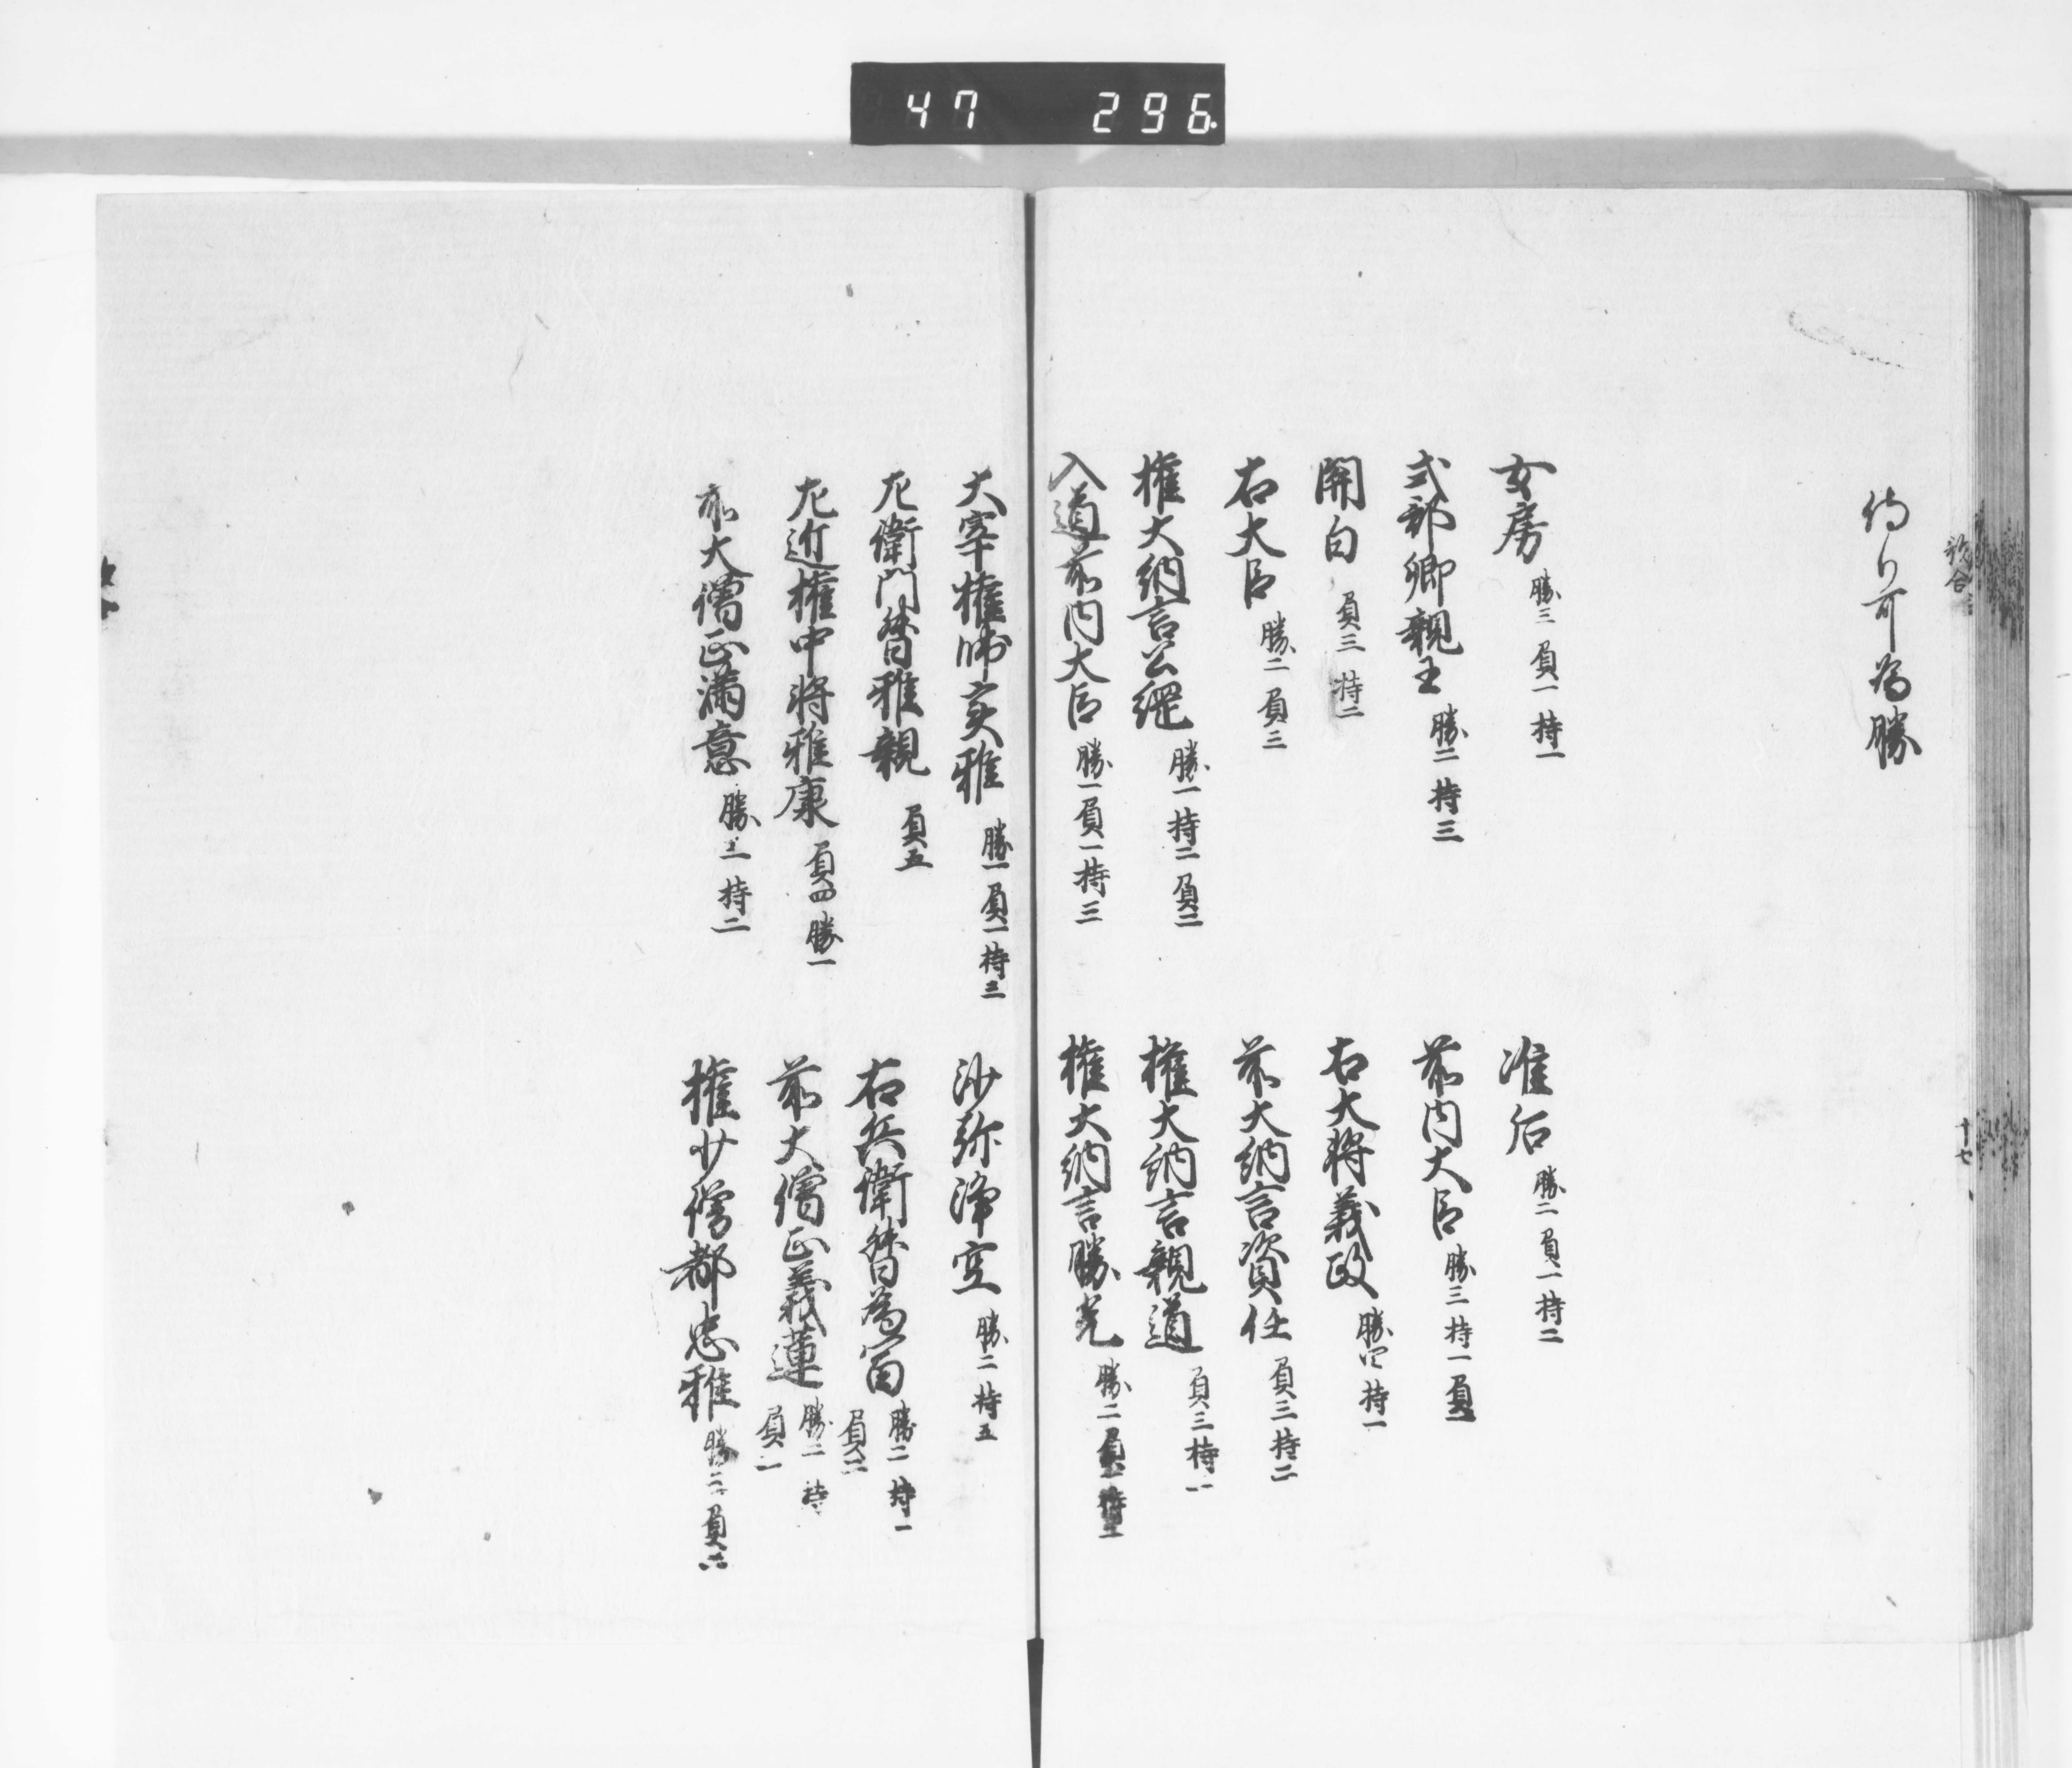 47 296
侍り可為勝
歌合
十七
女房 勝三 負一 持一
式部卿親王 勝二 持三
関白 負三 持二
右大臣 勝二 負三
権大納言公縄 勝一 持二 負二
入道前内大臣 勝一 負一 持三
准后 勝二 負一 持二
前内大臣 勝三 持一 負一
右大将義政 勝四 持一
前大納言資任 負三 持二
権大納言親道 負三 持二
権大納言勝光 勝二 負 持
大宰権帥実雅 勝一 負一 持三
左衛門督雅親 負五
左近権中将雅康 負四 勝一
前大僧正満意 勝三 持二
沙弥浄空 勝二 持五
右兵衛督為富 勝二 持一 負二
前大僧正義蓮 勝二 持 負一
権少僧都忠雅 勝二 負